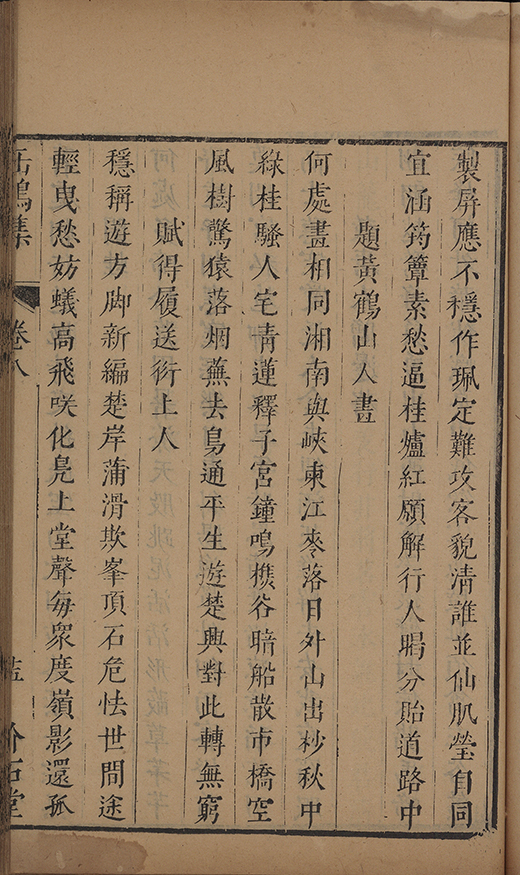 製屏應不穩作珮定難攻客貌清誰並仙肌瑩自同
宜涵筠簟素愁逼桂爐紅願解行人暍分貽道路中
題黃鶴山人畫
何處畫相同湘南與峽東江麥落日外山出杪秋中
綠桂騷人宅青蓮釋子宮鐘鳴樵谷暗船散市橋空
風樹驚猿落烟蕪去鳥通平生遊楚興對此轉無窮
賦得履送衍上人
穩稱遊方脚新編楚岸蒲滑欺峯頂石危怯世間途
輕曳愁妨蟻高飛咲化鳧上堂聲每衆度嶺影還孤
缶鳴集
卷八
介石堂